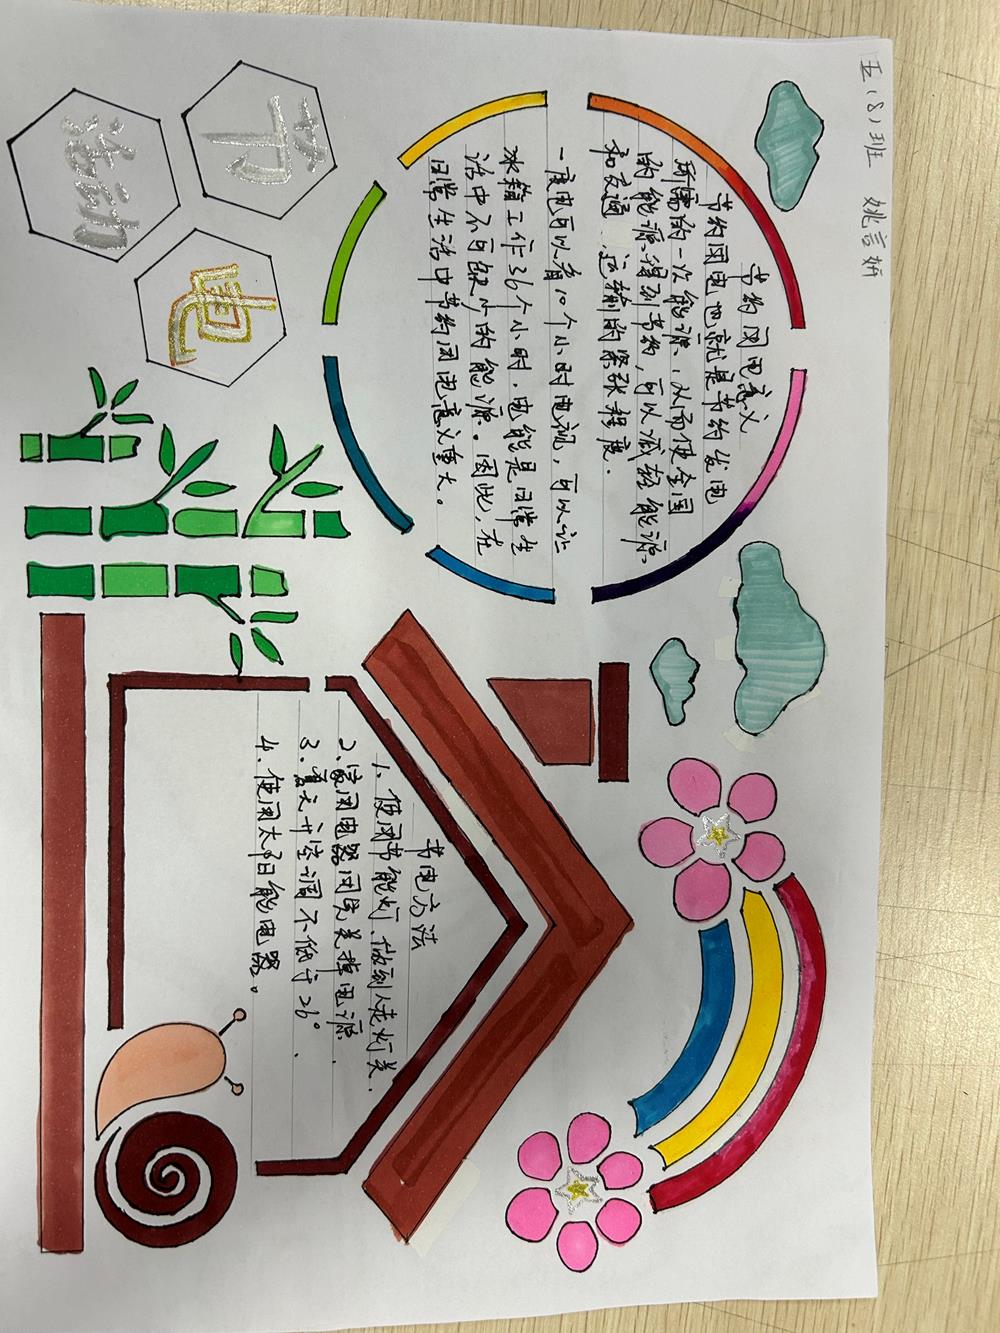 五(8)班 姚言妍
节约用电意义
节约用电也就是节约发电
所需的一次能源,从而使全国
的能源得到节约,可以减轻能源
和交通运输的紧张程度.
一度电可以看10个小时电视,可以让
冰箱工作36个小时.电能是日常生
活中不可缺少的能源。因此,在
日常生活中节约用电意义重大。
节
电
活动
节电方法
1.使用节能灯.做到人走灯关.
2.家用电器用完关掉电源.
3.夏天开空调不低于26°.
4.使用太阳能电器。